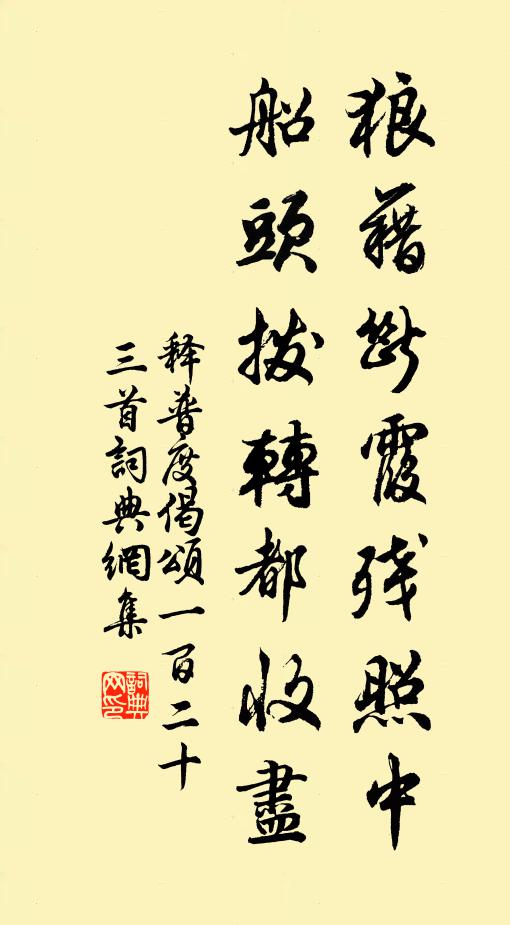 狼藉斷霞残照中
船頭拨轉都收盡
释普度偈頌一百二十
三首詞典網集
詞典
网印